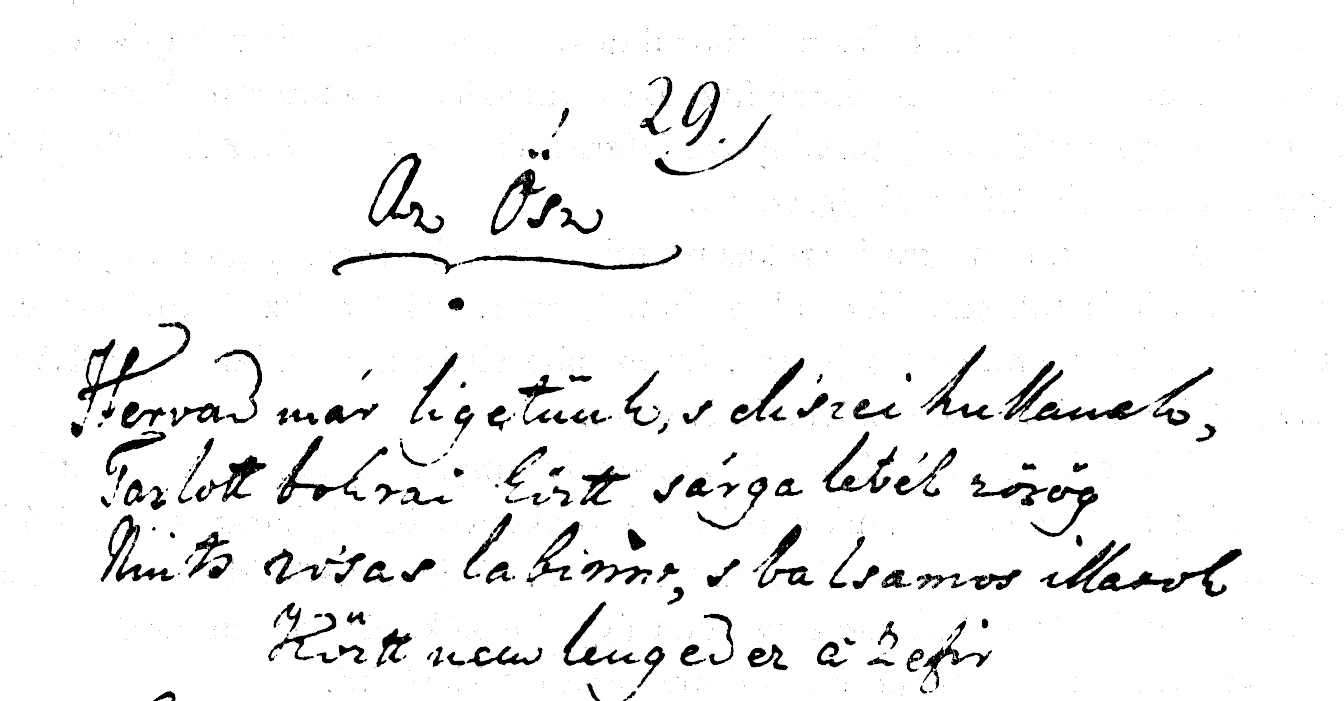 29.
Az Ősz
Hervad már ligetünk, s díszei hullanak,
Tarlott bokrai közt sárga levél zörög
Nints rósás labirint, s balsamos illatok
Köztt nem lengedez a' Zefir